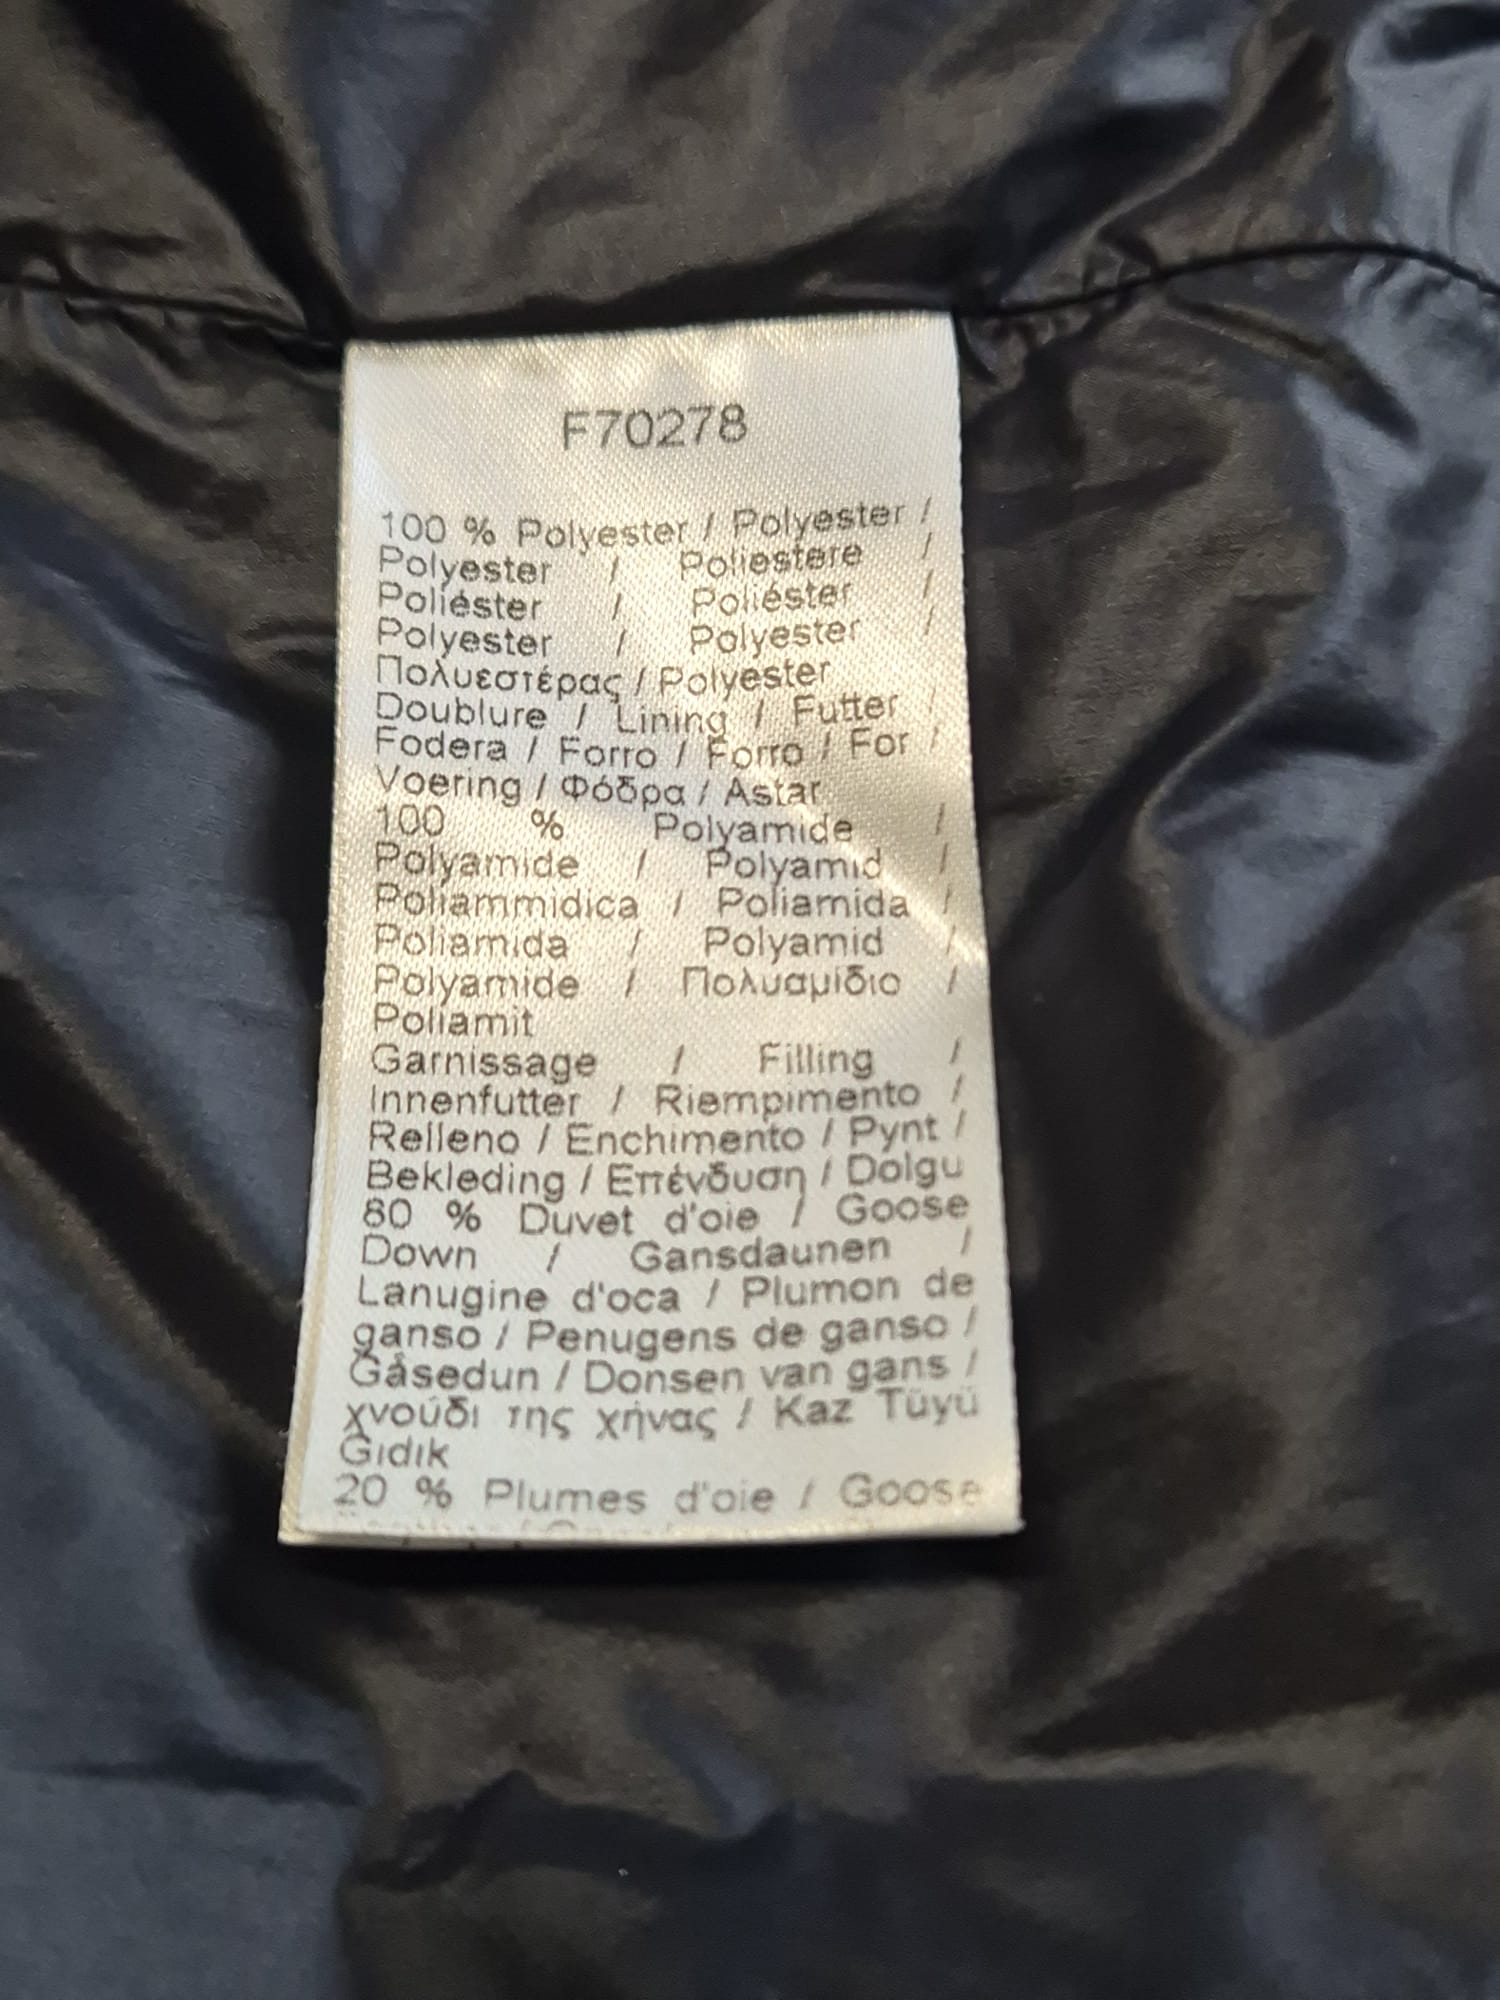 F70278
100 % Polyester / Polyester /
Polyester / Poliestere /
Poliéster / Poliéster /
Polyester / Polyester /
Πολυεστέρας / Polyester
Doublure / Lining / Futter /
Fodera / Forro / Forro / For /
Voering / Φόδρα / Astar
100 % Polyamide /
Polyamide / Polyamid /
Poliammidica / Poliamida /
Poliamida / Polyamid /
Polyamide / Πολυαμίδιο /
Poliamit
Garnissage / Filling /
Innenfutter / Riempimento /
Relleno / Enchimento / Pynt /
Bekleding / Επένδυση / Dolgu
80 % Duvet d'oie / Goose
Down / Gansdaunen /
Lanugine d'oca / Plumon de
ganso / Penugens de ganso /
Gåsedun / Donsen van gans /
χνούδι της χήνας / Kaz Tüyü
Gıdık
20 % Plumes d'oie / Goose